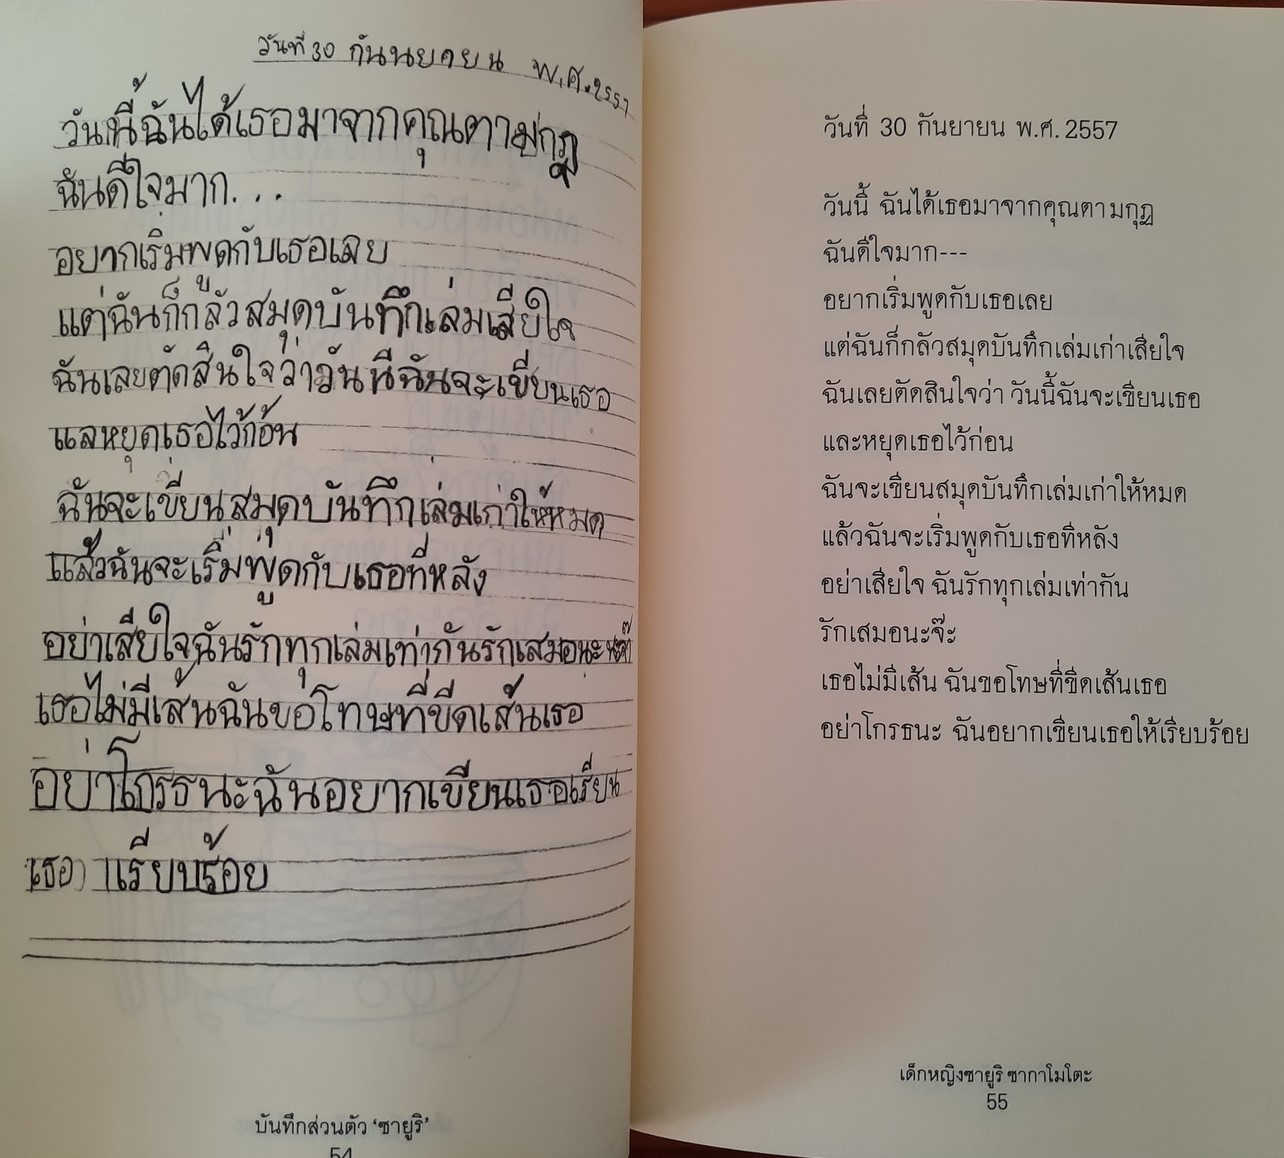 วันที่ 30 กันนยายน พ.ศ.2557
วันนี้ฉันได้เธอมาจากคุณตามกุฏ
ฉันดีใจมาก...
อยากเริ่มพูดกับเธอเลย
แต่ฉันก็กลัวสมุดบันทึกเล่มเสียใจ
ฉันเลยตัดสินใจว่าวันนี้ฉันจะเขียนเธอ
แลหยุดเธอไว้ก้อน
ฉันจะเขียนสมุดบันทึกเล่มเก่าให้หมด
แล้วฉันจะเริ่มพูดกับเธอที่หลัง
อย่าเสียใจฉันรักทุกเล่มเท่ากันรักเสมอนะ
เธอไม่มีเส้นฉันขอโทษที่ขีดเส้นเธอ
อย่าโกรธนะฉันอยากเขียนเธอเรียน
(เธอ) เรียบร้อย
บันทึกส่วนตัว ‘ซายูริ’
54
วันที่ 30 กันยายน พ.ศ. 2557
วันนี้ ฉันได้เธอมาจากคุณตามกุฏ
ฉันดีใจมาก---
อยากเริ่มพูดกับเธอเลย
แต่ฉันก็กลัวสมุดบันทึกเล่มเก่าเสียใจ
ฉันเลยตัดสินใจว่า วันนี้ฉันจะเขียนเธอ
และหยุดเธอไว้ก่อน
ฉันจะเขียนสมุดบันทึกเล่มเก่าให้หมด
แล้วฉันจะเริ่มพูดกับเธอทีหลัง
อย่าเสียใจ ฉันรักทุกเล่มเท่ากัน
รักเสมอนะจ๊ะ
เธอไม่มีเส้น ฉันขอโทษที่ขีดเส้นเธอ
อย่าโกรธนะ ฉันอยากเขียนเธอให้เรียบร้อย
เด็กหญิงซายูริ ซากาโมโตะ
55